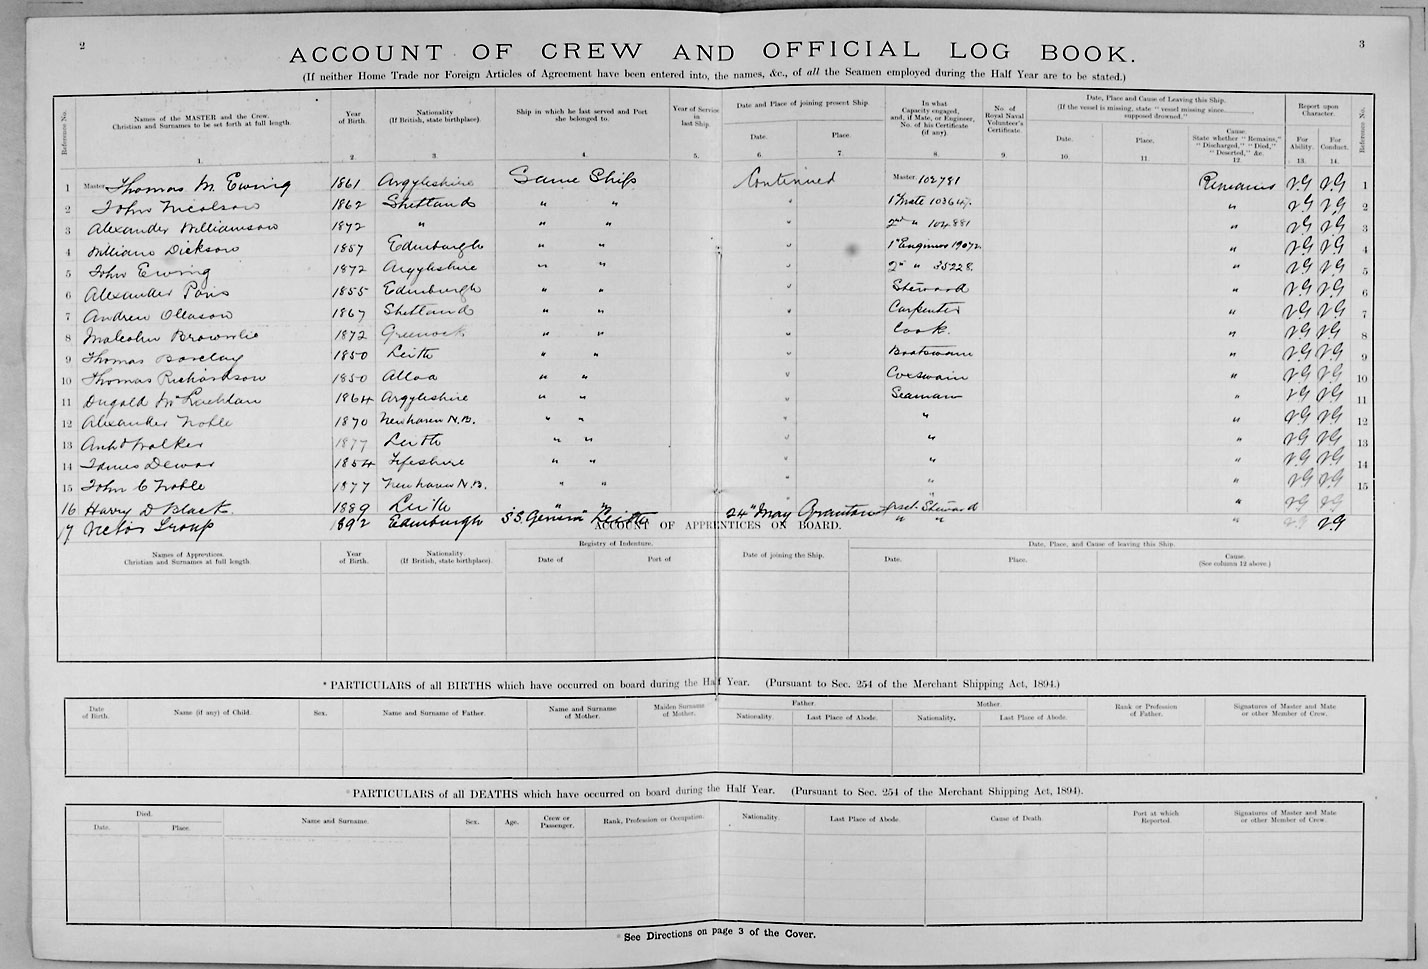 2
3
ACCOUNT OF CREW AND OFFICIAL LOG BOOK.
(If neither Home Trade nor Foreign Articles of Agreement have been entered into, the names, &c., of all the Seamen employed during the Half Year are to be stated.)
Reference No. Names of the MASTER and the Crew. Christian and Surnames to be set forth at full length. 1. Year of Birth. 2. Nationality (If British, state birthplace). 3. Ship in which he last served and Port she belonged to. 4. Year of Service in last Ship. 5. Date and Place of joining present Ship. Date. 6. Place. 7. In what Capacity engaged, and, if Mate, or Engineer, No. of his Certificate (if any). 8. No. of Royal Naval Volunteer's Certificate. 9. Date, Place and Cause of Leaving this Ship. (If the vessel is missing, state "vessel missing since supposed drowned.") Date. 10. Place. 11. Cause State whether "Remains," "Discharged," "Died," "Deserted," &c. 12. Report upon Character. For Ability. 13. For Conduct. 14. Reference No.
1 Master Thomas M. Ewing 1861 Argyleshire Same Ship Continued Master 102781 Remains V.G V.G 1
2 John Nicolson 1862 Shetland " " " 1st Mate 103647 " V.G V.G 2
3 Alexander Williamson 1872 " " " " 2nd " 104881 " V.G V.G 3
4 William Dickson 1857 Edinburgh " " " 1st Engineer 19072 " V.G V.G 4
5 John Ewing 1872 Argyleshire " " " 2nd " 35228 " V.G V.G 5
6 Alexander 1855 Edinburgh " " " Steward " V.G V.G 6
7 Andrew 1867 Shetland " " " Carpenter " V.G V.G 7
8 Malcolm Brownlie 1872 Greenock " " " Cook. " V.G V.G 8
9 Thomas Barclay 1850 Leith " " " Boatswain " V.G V.G 9
10 Thomas Richardson 1850 Alloa " " " Coxswain " V.G V.G 10
11 Dugald McLachlan 1864 Argyleshire " " " Seaman " V.G V.G 11
12 Alexander Noble 1870 Newhaven N.B. " " " " " V.G V.G 12
13 Archd Walker 1877 Leith " " " " " V.G V.G 13
14 James Dewar 1854 Fifeshire " " " " " V.G V.G 14
15 John C Noble 1877 Newhaven N.B. " " " " " V.G V.G 15
16 Harry D Black. 1889 Leith " " " Asst. Steward " V.G V.G
17 Victor 1892 Edinburgh S.S. Leith 24th May Granton " " " V.G V.G
ACCOUNT OF APPRENTICES ON BOARD.
Names of Apprentices. Christian and Surnames at full length. Year of Birth. Nationality. (If British, state birthplace). Registry of Indenture. Date of Port of Date of joining the Ship. Date, Place, and Cause of leaving this Ship. Date. Place. Cause. (See column 12 above.)
* PARTICULARS of all BIRTHS which have occurred on board during the Half Year. (Pursuant to Sec. 254 of the Merchant Shipping Act, 1894.)
Date of Birth. Name (if any) of Child. Sex. Name and Surname of Father. Name and Surname of Mother. Maiden Surname of Mother. Father. Nationality. Last Place of Abode. Mother. Nationality. Last Place of Abode. Rank or Profession of Father. Signatures of Master and Mate or other Member of Crew.
* PARTICULARS of all DEATHS which have occurred on board during the Half Year. (Pursuant to Sec. 254 of the Merchant Shipping Act, 1894).
Died. Date. Place. Name and Surname. Sex. Age. Crew or Passenger. Rank, Profession or Occupation. Nationality. Last Place of Abode. Cause of Death. Port at which Reported. Signatures of Master and Mate or other Member of Crew.
* See Directions on page 3 of the Cover.